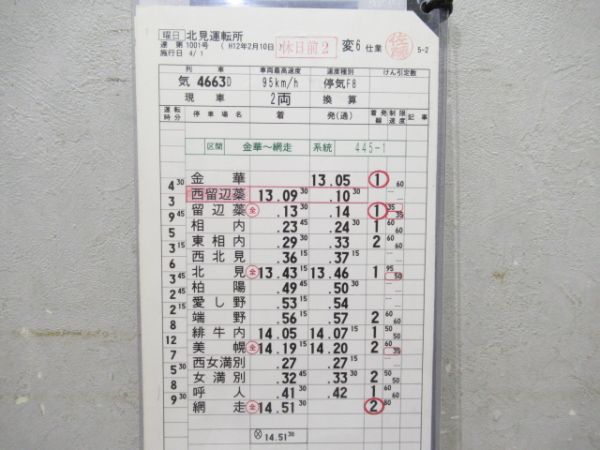 曜日 北見運転所
達 第1001号 ( H12年2月10日 ) 休日前2 変6 仕業 佐藤
施行日 4/1 5-2
列車 車両最高速度 速度種別 けん引定数
気 4663D 95km/h 停気F8
現車 2両 換算
運転時分 停車場名 着 発(通) 着発線 制限速度 記事
区間 金華~網走 系統 445-1
金華 13.05 1 60
4 30
西留辺蘂 13.09 30 .10 30
3
留辺蘂 全 .13 30 .14 1 35 35
9 45
相内 .23 45 .24 30 1 60 60
5
東相内 .29 30 .33 2 60
3 15
西北見 .36 15 .37
6
北見 全 13.43 15 13.46 1 95 50
3 45
柏陽 .49 45 .50
3
愛し野 .53 .54
2 15
端野 .56 .57 2 60
8
緋牛内 14.05 14.07 15 1 50 50
12
美幌 全 14.19 15 14.20 2 60 35
7
西女満別 .27 .27 30
5
女満別 .32 45 .33 30 2 50 50
8
呼人 .41 30 .42 1 60
9 30
網走 全 14.51 30 2 60
14.51 30